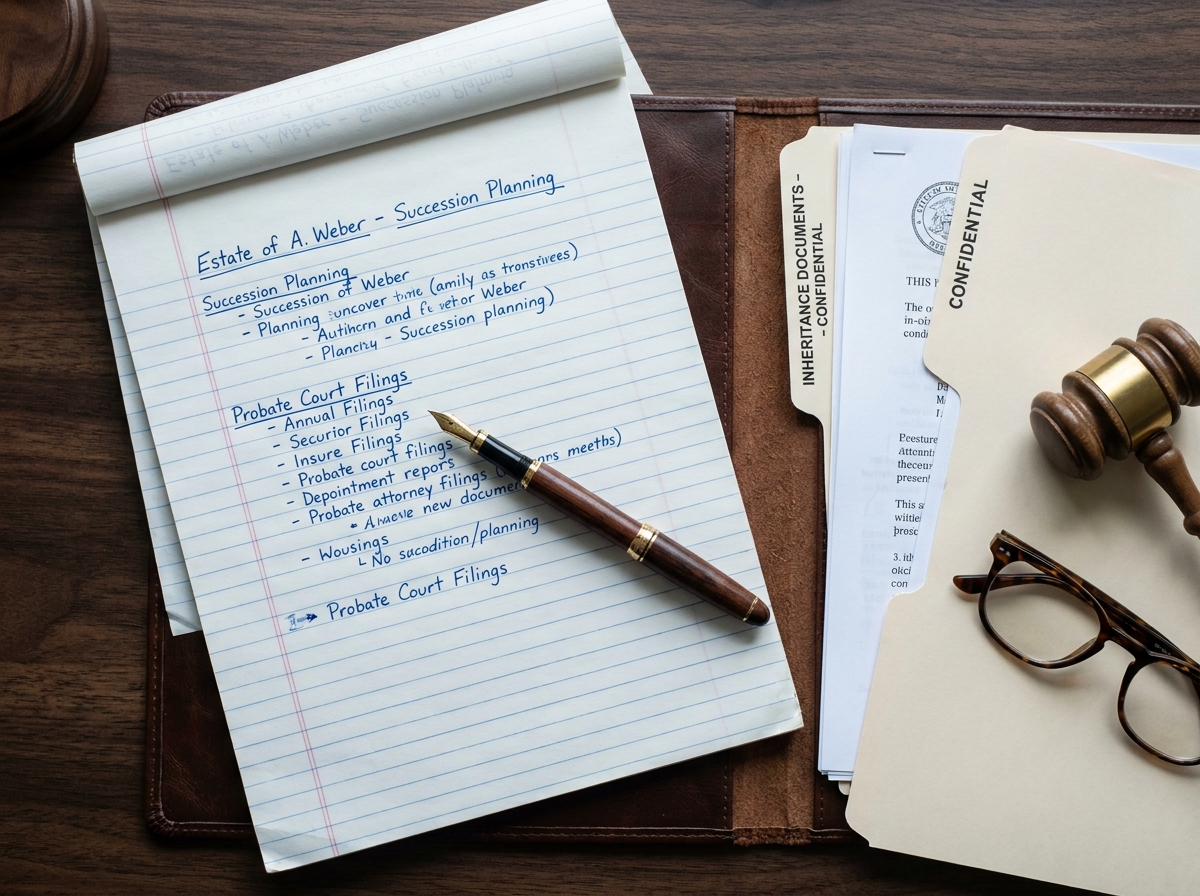 Estate of A. Weber - Succession Planning
Succession Planning
- Succession of Weber
- Planning time (amily as tronstivees)
- Authern and Weber
- Plancizy - Succession planning)
Probate Court Filings
- Annual Filings
- Securior Filings
- Insure Filings
- Probate court filings
- Depointment reports
- Probate attorney filings meetbs)
new
- Wousings
No sacodition/planning
Probate Court Filings
INHERITANCE DOCUMENTS -
- CONFIDENTIAL
THIS
The
in-oi
condi
Da
M
Peesture
Attcnti
theceur
present
This
witile
prosc
3.
okci
con
CONFIDENTIAL